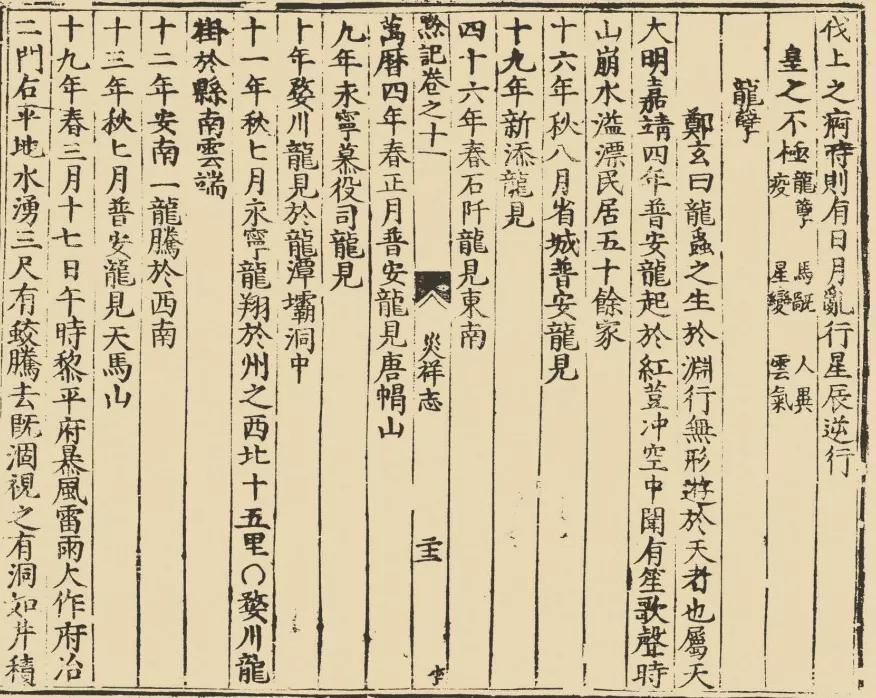 伐上之痾時則有日月亂行星辰逆行
皇之不極 龍孽 馬旤 人異
疫 星變 雲氣
龍孽
鄭玄曰龍蟲之生於淵行無形遊於天者也屬天
大明嘉靖四年普安龍起於紅荳冲空中聞有笙歌聲時
山崩水溢漂民居五十餘家
十六年秋八月省城普安龍見
十九年新添龍見
四十六年春石阡龍見東南
黔記卷之十一 災祥志
萬曆四年春正月普安龍見唐帽山
九年永寧慕役司龍見
十年婺川龍見於龍潭壩洞中
十一年秋七月永寧龍翔於州之西北十五里○婺川龍
掛於縣南雲端
十二年安南一龍騰於西南
十三年秋七月普安龍見天馬山
十九年春三月十七日午時黎平府暴風雷雨大作府治
二門右平地水湧三尺有蛟騰去旣涸視之有洞如井積